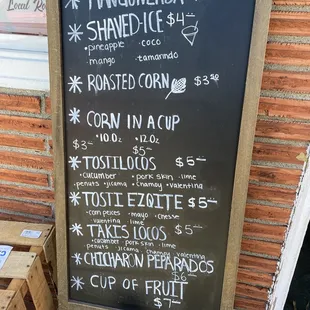 Local R
MANGONEADA
SHAVED-ICE $4
•pineapple •coco
•mango •tamarindo
ROASTED CORN $3.50
CORN IN A CUP
•10.0z •12.0z
$3 $5
TOSTILOCOS $5
•cucumber •pork skin •lime
•penuts •jicama •chamoy •valentina
TOSTI EZQITE $5
•corn peices •mayo •cheese
•valentina •lime
TAKIS LOCOS $5
•cucumber •pork skin •lime
•penuts •jicama •chamoy •valentina
CHICHARON PEPARADOS
$6
CUP OF FRUIT
$7